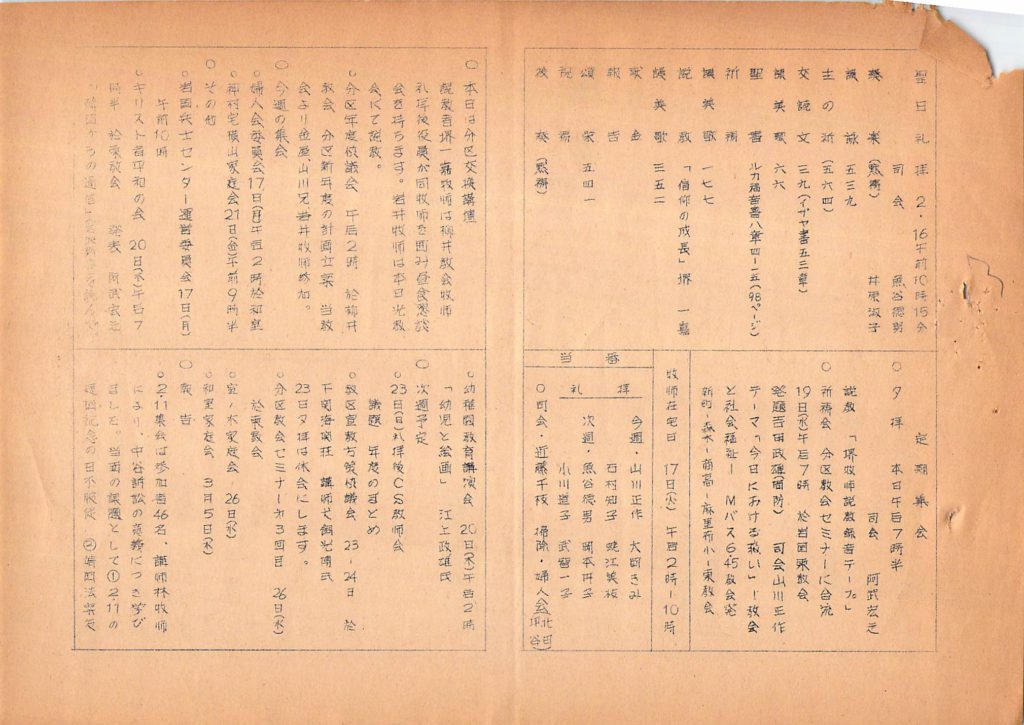 聖日礼拝 2・16午前10時15分
司会 魚谷德男
奏楽(黙祷) 井原淑子
讃詠 五三九
主の祈(五六四)
交読文 三九(イザヤ書五三章)
讃美歌 六六
聖書 ルカ福音書八章四−一五(98ページ)
祈祷
讃美歌 一七七
説教 「信仰の成長」堺 一嘉
讃美歌 三五二
献金
報告
頌栄 五四一
祝祷
後奏(黙祷)
定期集会
○夕拝 本日午后7時半
司会 阿武宏之
説教 「堺牧師説教録音テープ」
○祈祷会 分区教会セミナーに合流
19日(水)午后7時 於岩国東教会
発題吉田政雄(周防) 司会山川正作
テーマ「今日における救い」−教会
と社会福祉− Mバス6.45教会発
新町−森本−商高−麻里布小−東教会
牧師在宅日 17日(火) 午后2時−10時
当番
礼拝
今週・山川正作 大岡きみ
石村知子 暁江美枝
次週・魚谷德男 岡本井子
小川道子 武智一子
○司会・近藤千枝 掃除・婦人会
○本日は分区交換講壇
説教者堺一嘉牧師は柳井教会牧師
礼拝後役員が同牧師を囲み昼食懇談
会を持ちます。岩井牧師は本日光教
会にて説教。
○分区年度協議会 午后2時 於柳井
教会 分区新年度の計画立案 当教
会より 山川兄岩井牧師参加。
○今週の集会
○婦人会委員会17日(月)午后2時於和室
○神村宅横山家庭会21日(金)午前9時半
○その他
○岩国兵士センター運営委員会17日(月)
午前10時
○キリスト者平和の会 20日(木)午后7
時半 於東教会 発表 阿武宏之
○幼稚園教育講演会 20日(木)午后2時
「幼児と絵画」 江上政雄氏
○次週予定
○23日(日)礼拝後CS教師会
議題 年度のまとめ
○教区宣教方策協議会 23−24日 於
下関海関荘 講師犬飼光博氏
23日夕拝は休会にします。
○分区教会セミナーオ3回目 26日(水)
於東教会
○室ノ木家庭会・26日(水)
○和室家庭会 3月5日(水)
○報告
○2.11集会は参加者46名、講師林牧師
により、中谷訴訟の意義につき学び
ました。当面の課題として①2.11の
建国記念の日不服従 ②靖国法案反